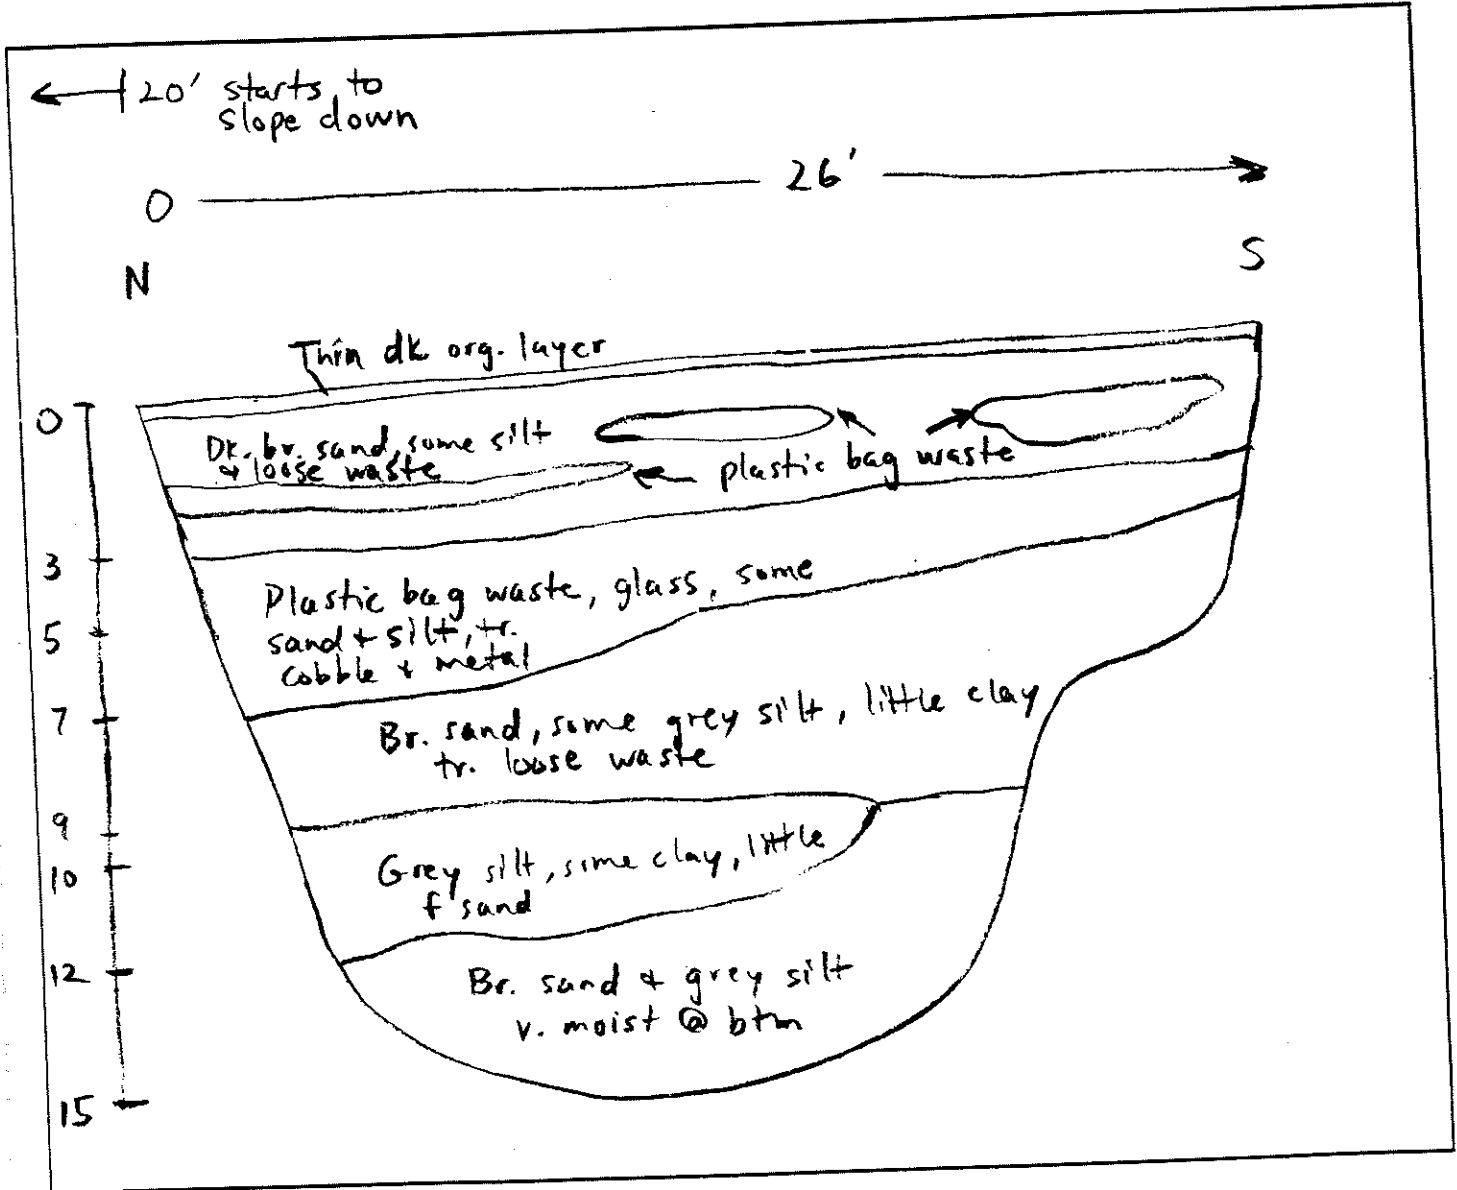 20' starts to
slope down
0
26'
N
S
Thin dk org. layer
0
Dk. br. sand, some silt
+ loose waste
plastic bag waste
3
Plastic bag waste, glass, some
sand + silt, tr.
cobble + metal
5
7
Br. sand, some grey silt, little clay
tr. loose waste
9
Grey silt, some clay, little
f sand
10
12
Br. sand + grey silt
v. moist @ btm
15